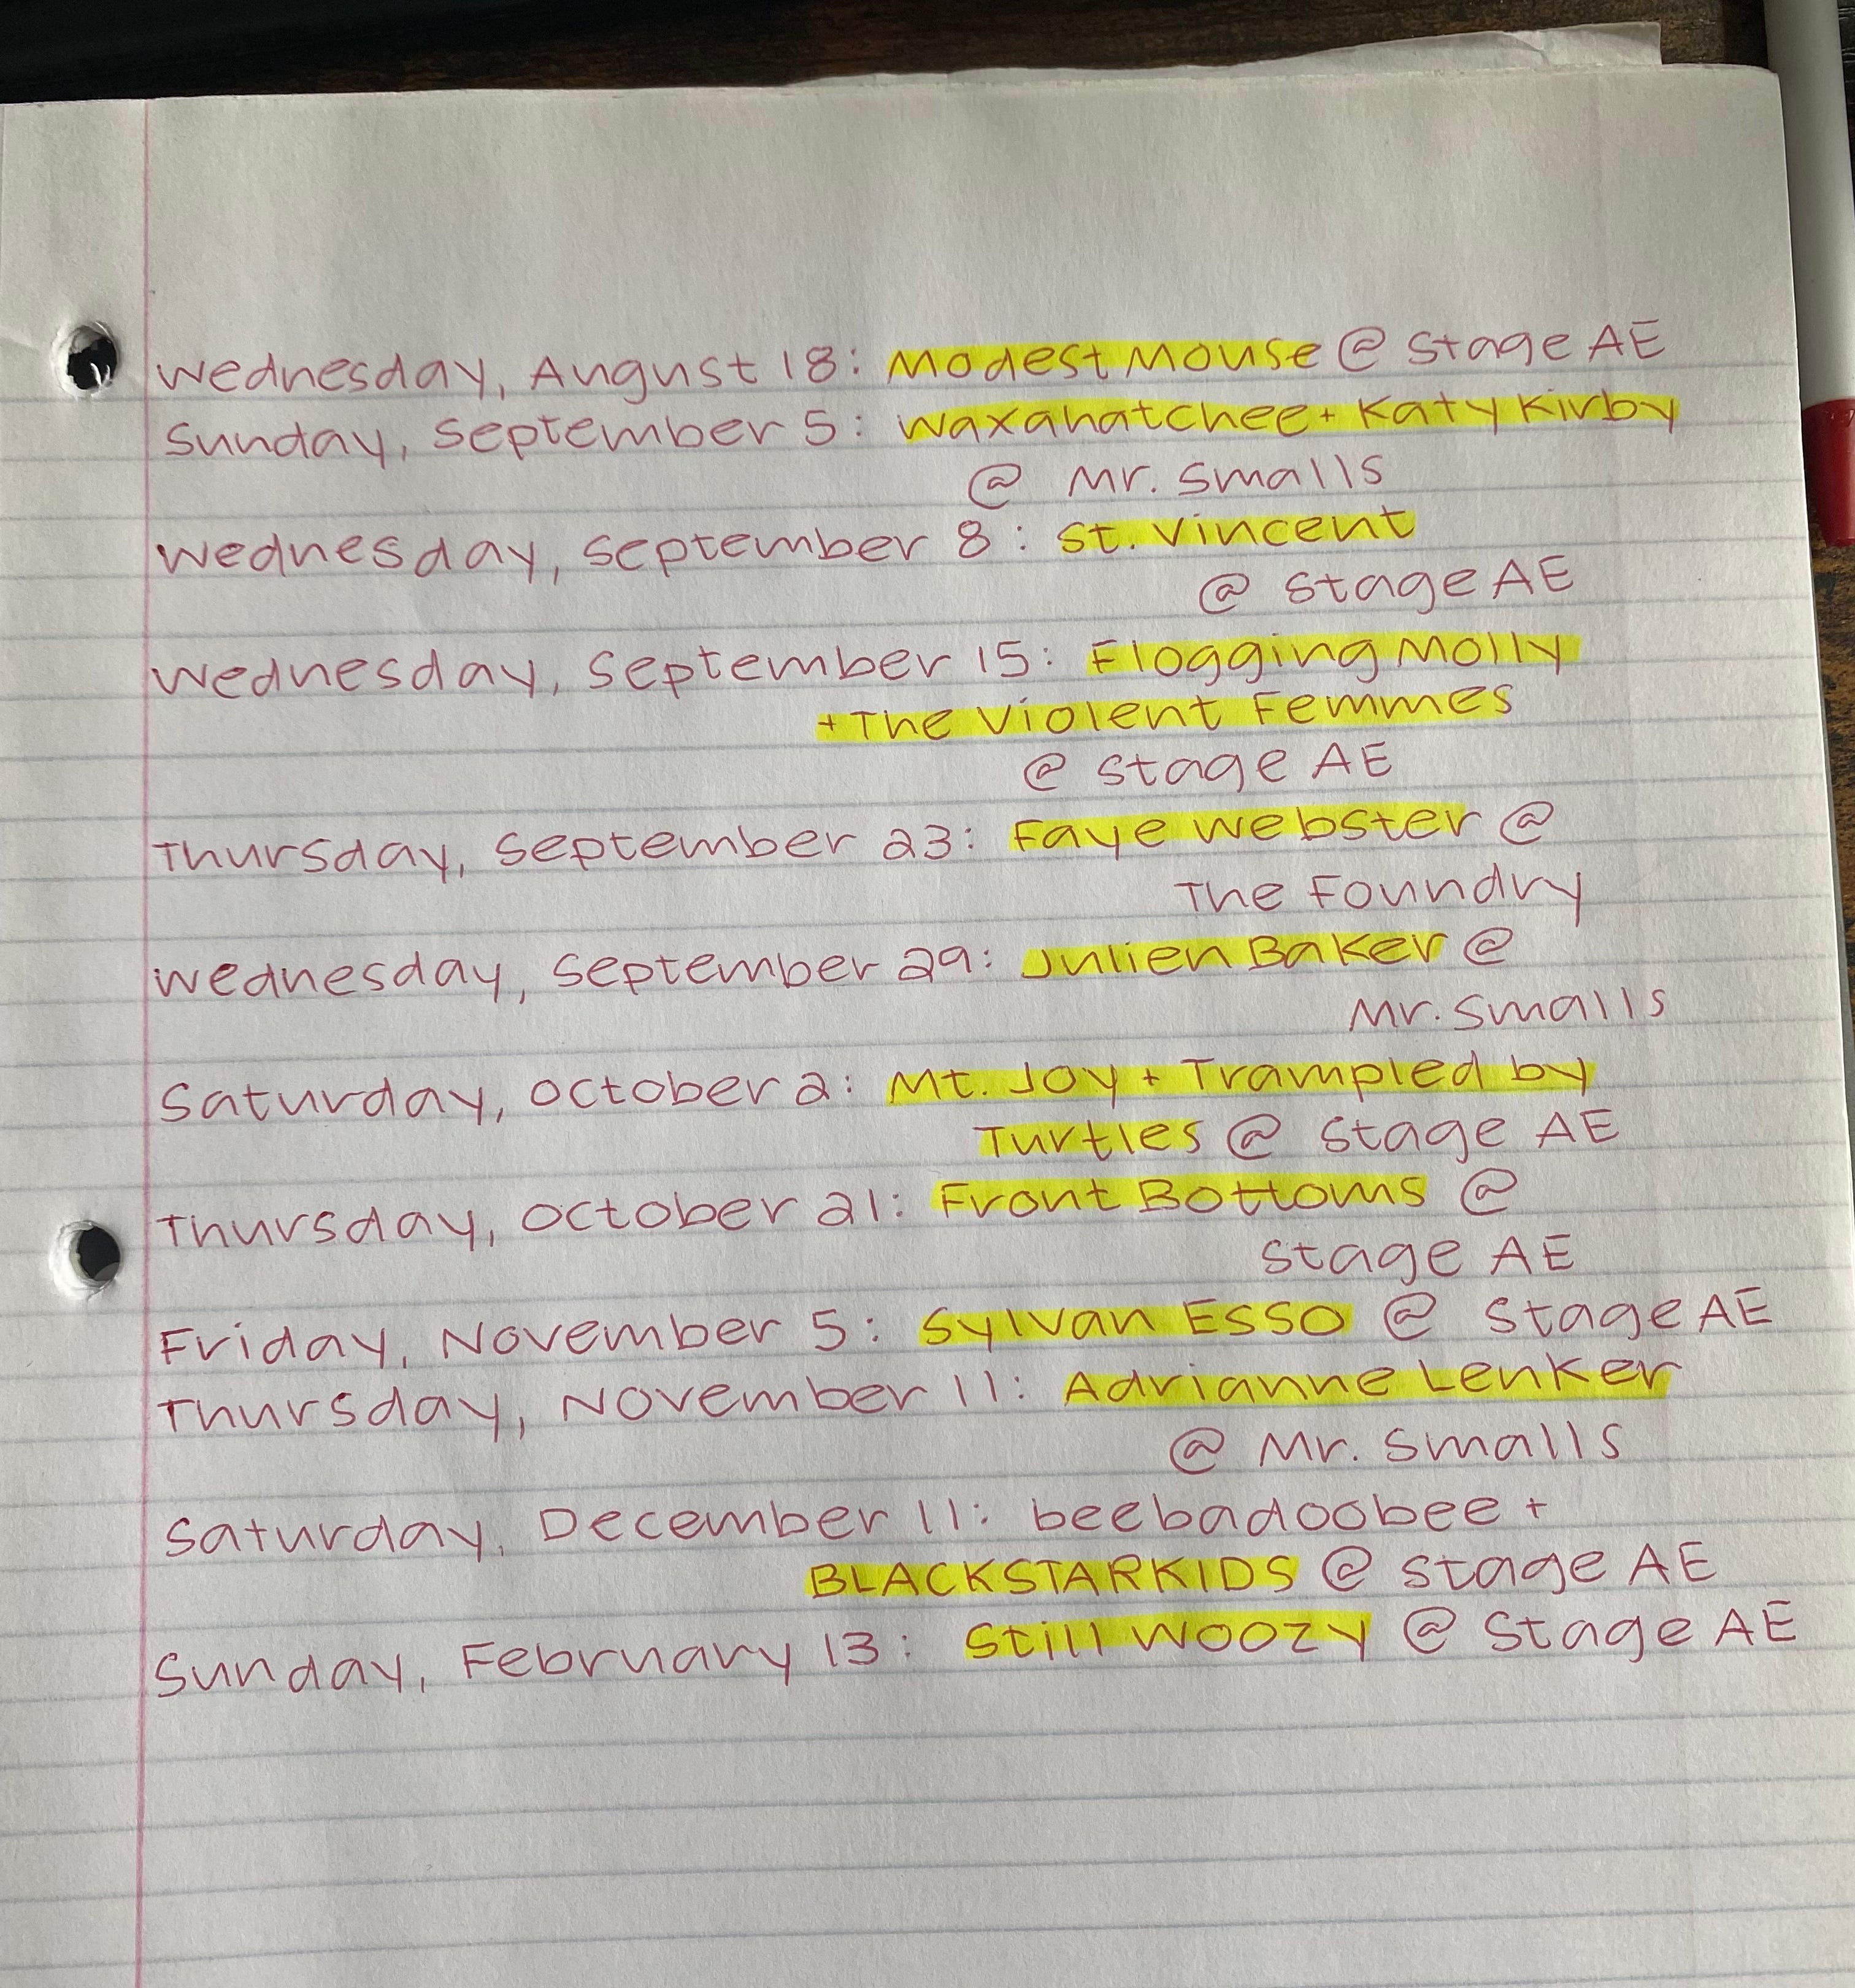 Wednesday, August 18: Modest Mouse @ Stage AE
Sunday, September 5: Waxahatchee + Katy Kirby
@ Mr. Smalls
Wednesday, September 8: St. Vincent
@ Stage AE
Wednesday, September 15: Flogging Molly
+ The Violent Femmes
@ Stage AE
Thursday, September 23: Faye Webster @
The Foundry
Wednesday, September 29: Julien Baker @
Mr. Smalls
Saturday, October 2: Mt. Joy + Trampled by
Turtles @ Stage AE
Thursday, October 21: Front Bottoms @
Stage AE
Friday, November 5: Sylvan Esso @ Stage AE
Thursday, November 11: Adrianne Lenker
@ Mr. Smalls
Saturday, December 11: beebadoobee +
BLACKSTARKIDS @ Stage AE
Sunday, February 13: Still Woozy @ Stage AE